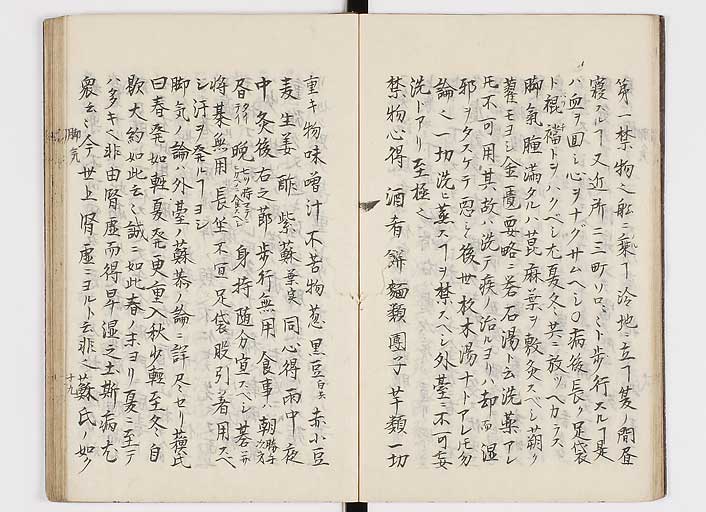 第一禁物之船ニ乗ヿ冷地ニ立ヿ夏ノ間昼
寝スルヿ又近所二三町ソロ〳〵ト歩行スルヿ是
ハ血ヲ回シ心ヲナグサムヘシ〇病後長ク足袋
ト裩襠トヲハクベシ尤夏冬共ニ放ツヘカラス
脚氣腫満タルハ萞麻葉ヲ敷灸スベシ蒴
藋モヨシ金匱要略ニ礬石湯ト云洗薬アレ
𪜈不可用其故ハ洗テ疾ノ治ルヨリハ却而湿
邪ヲタスケテ悪シ後世杉木湯ナトアレ𪜈勿
論之一切洗ヒ蒸スヿヲ禁スベシ外臺ニ不可妄
洗トアリ至極之
禁物心得 酒者餅麺類團子芋類一切
重キ物味噌汁不苦物葱黒豆赤小豆
麦生姜酢紫蘇葉実同心得雨中夜
中灸後右之節歩行無用食事ハ朝
昼晩 身持随分宜スベシ碁
将棊無用長坐不宜足袋股引着用スベ
シ汗ヲ発スルヿヨシ
脚氣ノ論ハ外臺ノ蘓恭ノ論ニ詳尽セリ蘓氏
曰春発如軽夏発更重入秋少軽至冬自
歇大約如此云〻誠ニ如此春ノ末ヨリ夏ニ至テ
ハ多キヘ非由腎虚而得卑湿之土斯病尤
衆云〻今世上腎虚ニヨルト云非之蘓氏ノ如ク
脚気
十九